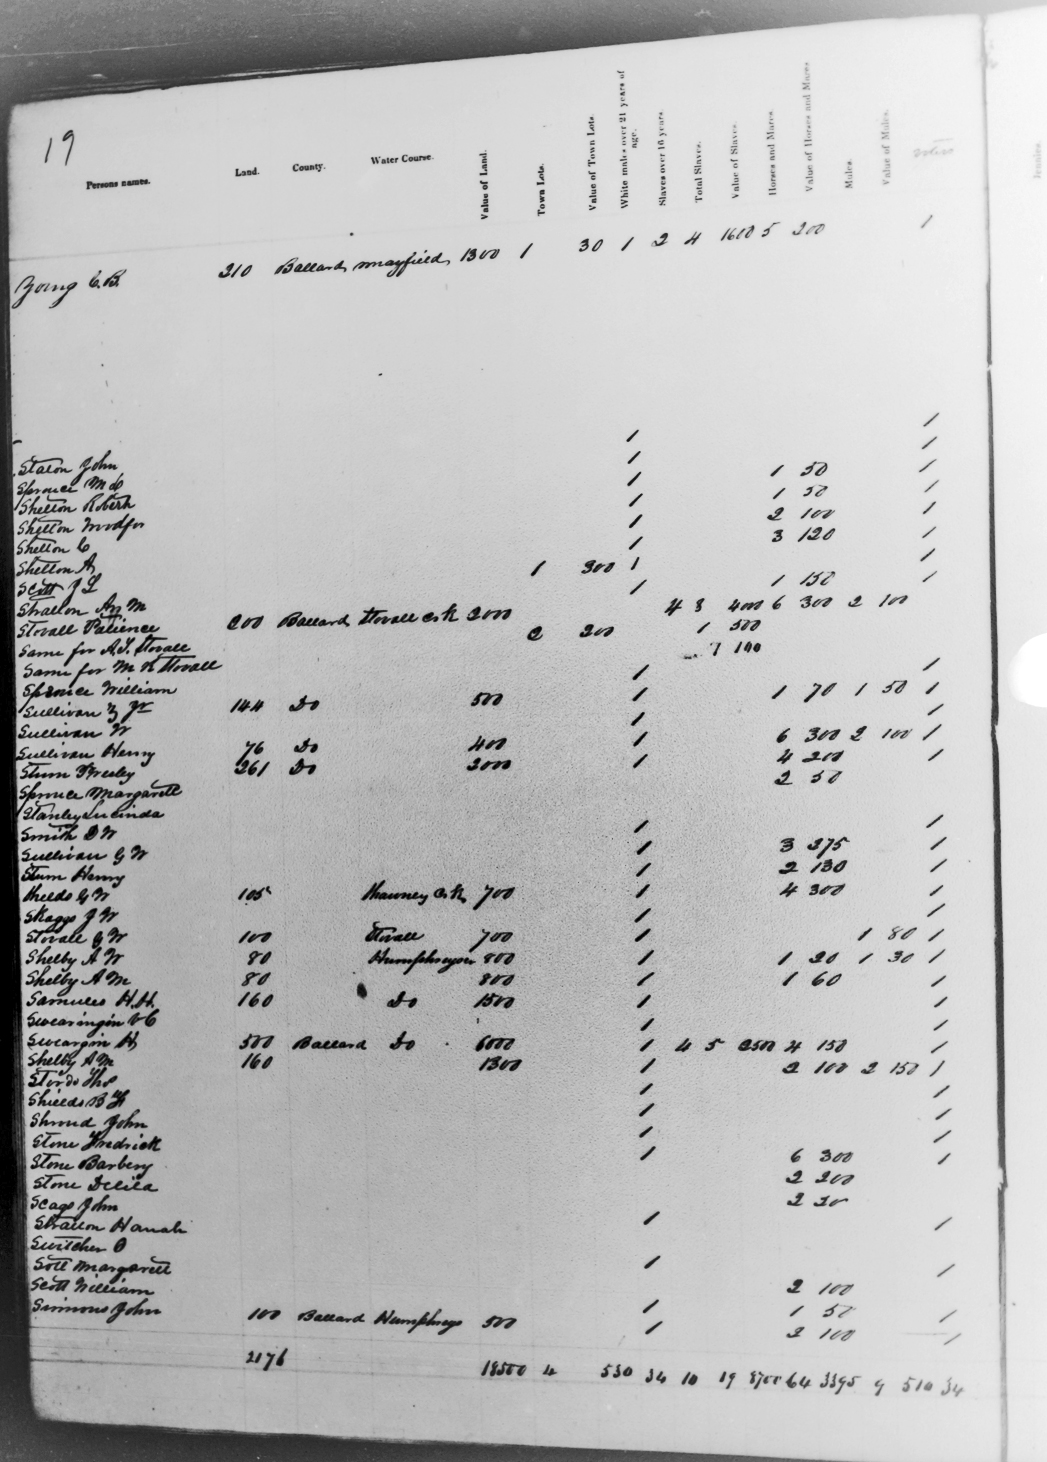 19
Persons names. Land. County. Water Course. Value of Land. Town Lots. Value of Town Lots. White males over 21 years of age. Slaves over 16 years. Total Slaves. Value of Slaves. Horses and Mares. Value of Horses and Mares Mules. Value of Mules.
Young C. B. 210 Ballard mayfield 1300 1 30 1 2 4 1600 5 200 1
Staton John 1 1
Sprouce M 1 1
Shelton Robert 1 1 50 1
Shelton 1 1 50 1
Shelton C 1 2 100 1
Shelton A 1 3 120 1
Scott J L 1 300 1 1
Stratton M 1 1 150 1
Stovall Patience 200 Ballard Stovall Crk 2000 4 8 4000 6 300 2 100
Same for A. S. Stovall 2 200 1 500
Same for M N Stovall 7 100
Sprouce William 1 1
Sullivan Z Jr 144 Do 500 1 1 70 1 50 1
Sullivan W 1 1
Sullivan Henry 76 Do 400 1 6 300 2 100 1
Stum Presley 261 Do 2000 1 4 200 1
Sprouce Margarett 2 50
Stanley Lucinda
Smith D W 1 1
Sullivan G W 1 3 275 1
Stum Henry 1 2 130 1
Shields G W 105 Crk 700 1 4 300 1
Skaggs J W 1 1
Stovall G W 100 Stovall 700 1 1 80 1
Shelby A W 80 Humphreys 800 1 1 20 1 30 1
Shelby A M 80 800 1 1 60 1
Samuels H. H. 160 Do 1500 1 1
Swearingin V C 1 1
Sweargin H 500 Ballard Do 6000 1 4 5 2500 4 150 1
Shelby A M 160 1300 1 2 100 2 150 1
Thos 1 1
Shields B F 1 1
Shroud John 1 1
Stone Fredrick 1 6 300 1
Stone Barbery 2 200
Stone Delila 2 20
Scags John 1 1
Stratton Hanah
Switcher O 1 1
Sott Margarett 2 100
Scott William 1 1 50 1
Simmons John 100 Ballard Humphreys 500 1 2 100 1
2176 18500 4 530 34 10 19 8700 64 3395 9 510 34